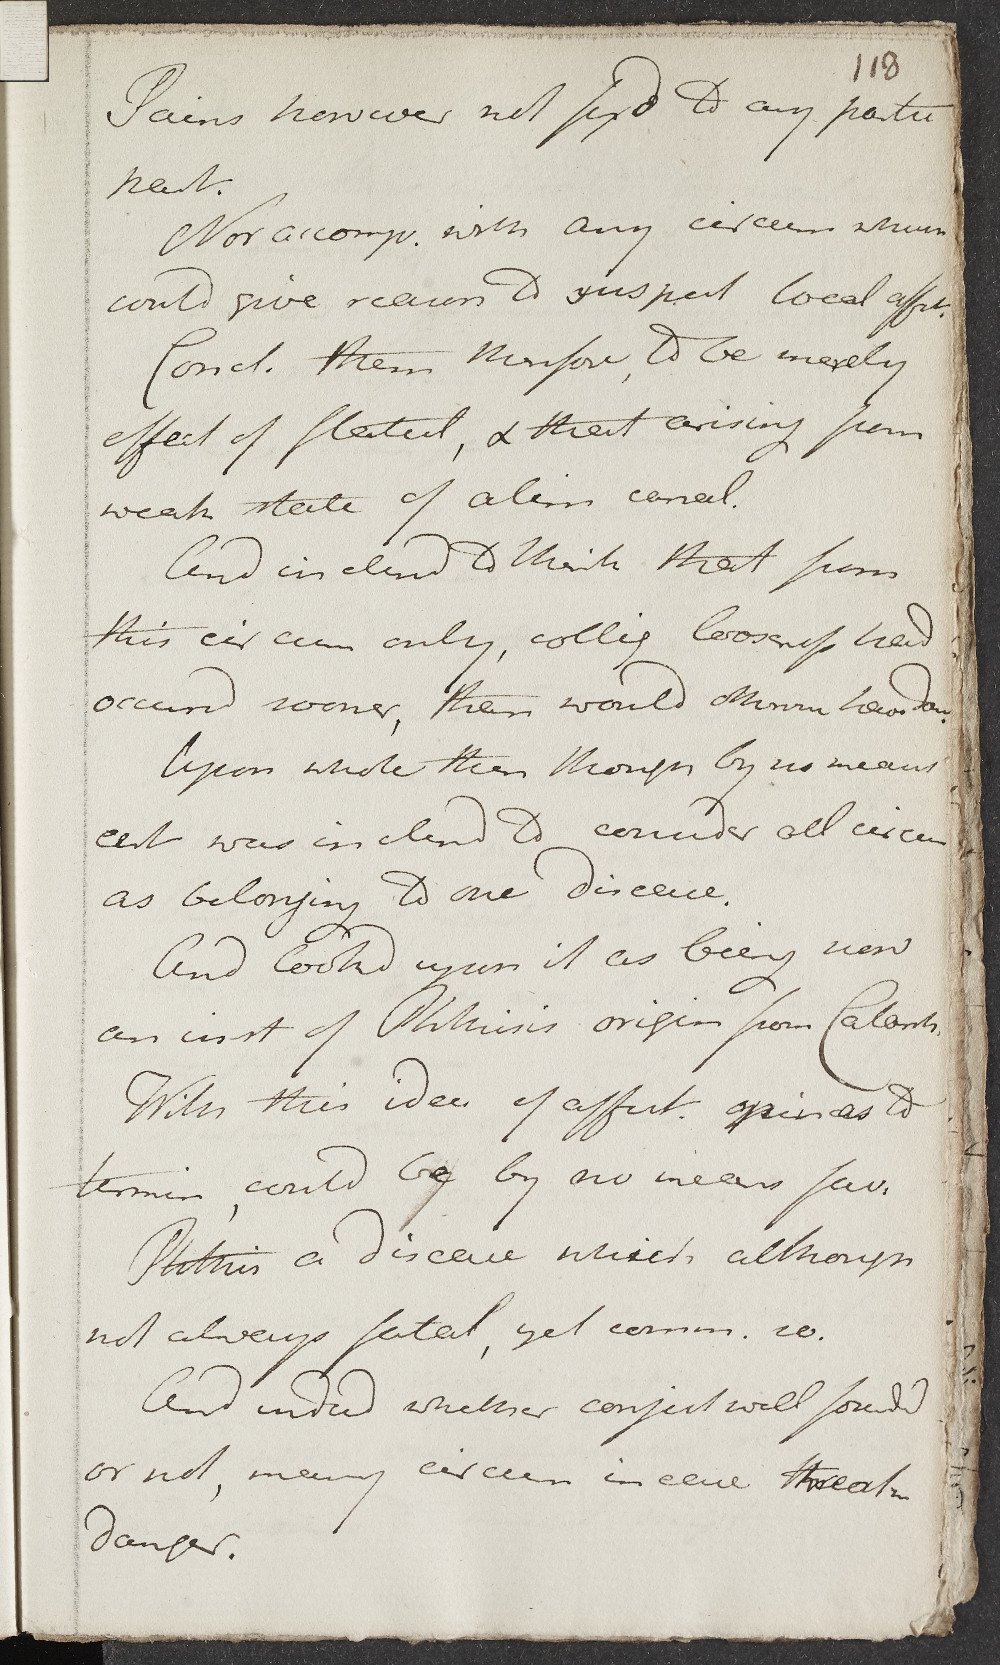 118
Pains however not fix'd to any partic
part.
Nor accomp. with any circum whence
could give reason to suspect local affect.
Concl. them therefore, to be merely
effect of flatul, & that arising from
weak state of alim canal.
And inclind to think that from
this circum only, colliq looseness had
occurrd sooner, than would otherw have don.
Upon whole then though by no means
cert was inclind to consider all circum
as belonging to one disease.
And look'd upon it as being now
an inst of Phthisis origin from Catarrh.
With this idea of affect. opin as to
termin, could be by no means fav.
Phthis a disease which although
not always fatal, yet comm. so.
And indeed whether conject well found'd
or not, many circum in case threatn
danger.